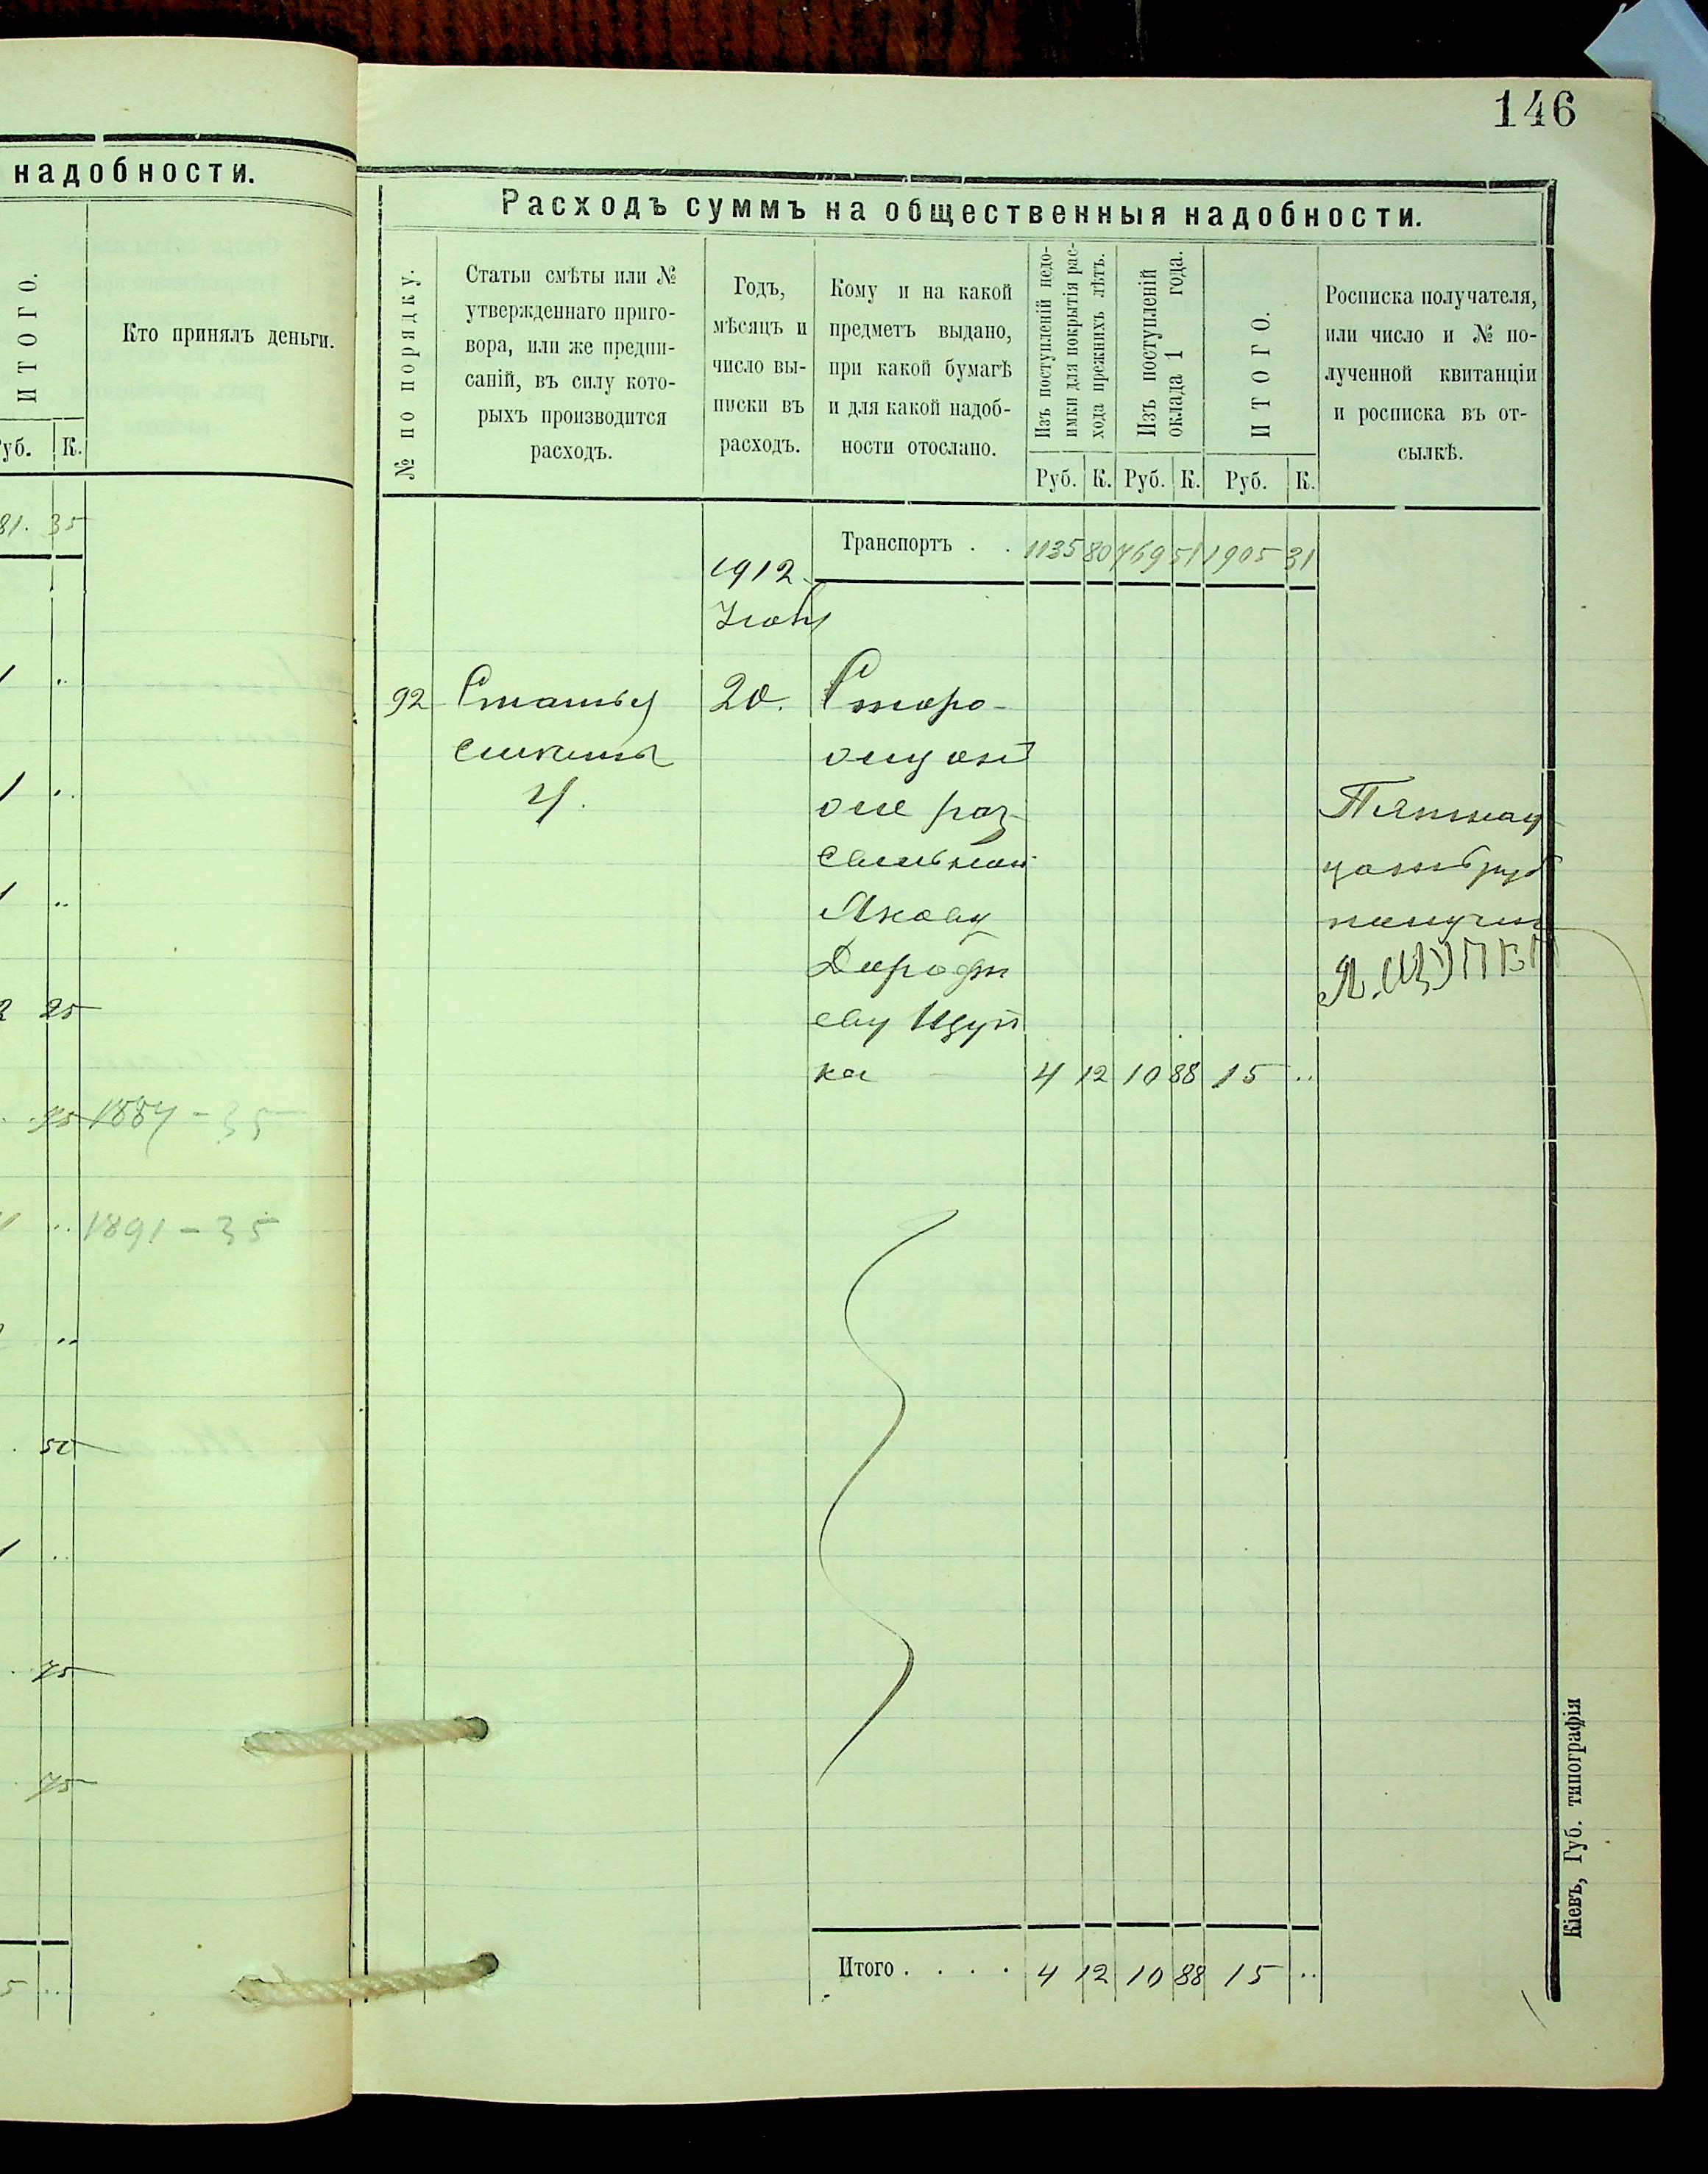 146
надобности.
ИТОГО.
Кто принялъ деньги.
уб. К.
81. 35
2 25
75 1887 - 35
1891 - 35
50
75
75
5
Расходъ суммъ на общественныя надобности.
№ по порядку.
Статьи смѣты или №
утвержденнаго приго-
вора, или же предпи-
саній, въ силу кото-
рыхъ производится
расходъ.
Годъ,
мѣсяцъ и
число вы-
писки въ
расходъ.
Кому и на какой
предметъ выдано,
при какой бумагѣ
и для какой надоб-
ности отослано.
Изъ поступленій недо-
имки для покрытія рас-
хода прежнихъ лѣтъ.
Изъ поступленій
оклада 1 года.
ИТОГО.
Росписка получателя,
или число и № по-
лученной квитанціи
и росписка въ от-
сылкѣ.
Руб. К. Руб. К. Руб. К.
Транспортъ . . 1135 80 769 51 1905 31
1912
92 Статья 20. Сторо-
смѣты
4.
Якову
Дорофѣ
еву Щуп
ка 4 12 10 88 15 ..
Пятнад
цать руб
получил
Я. Щупак
Итого . . . . 4 12 10 88 15 ..
Кіевъ, Губ. типографія